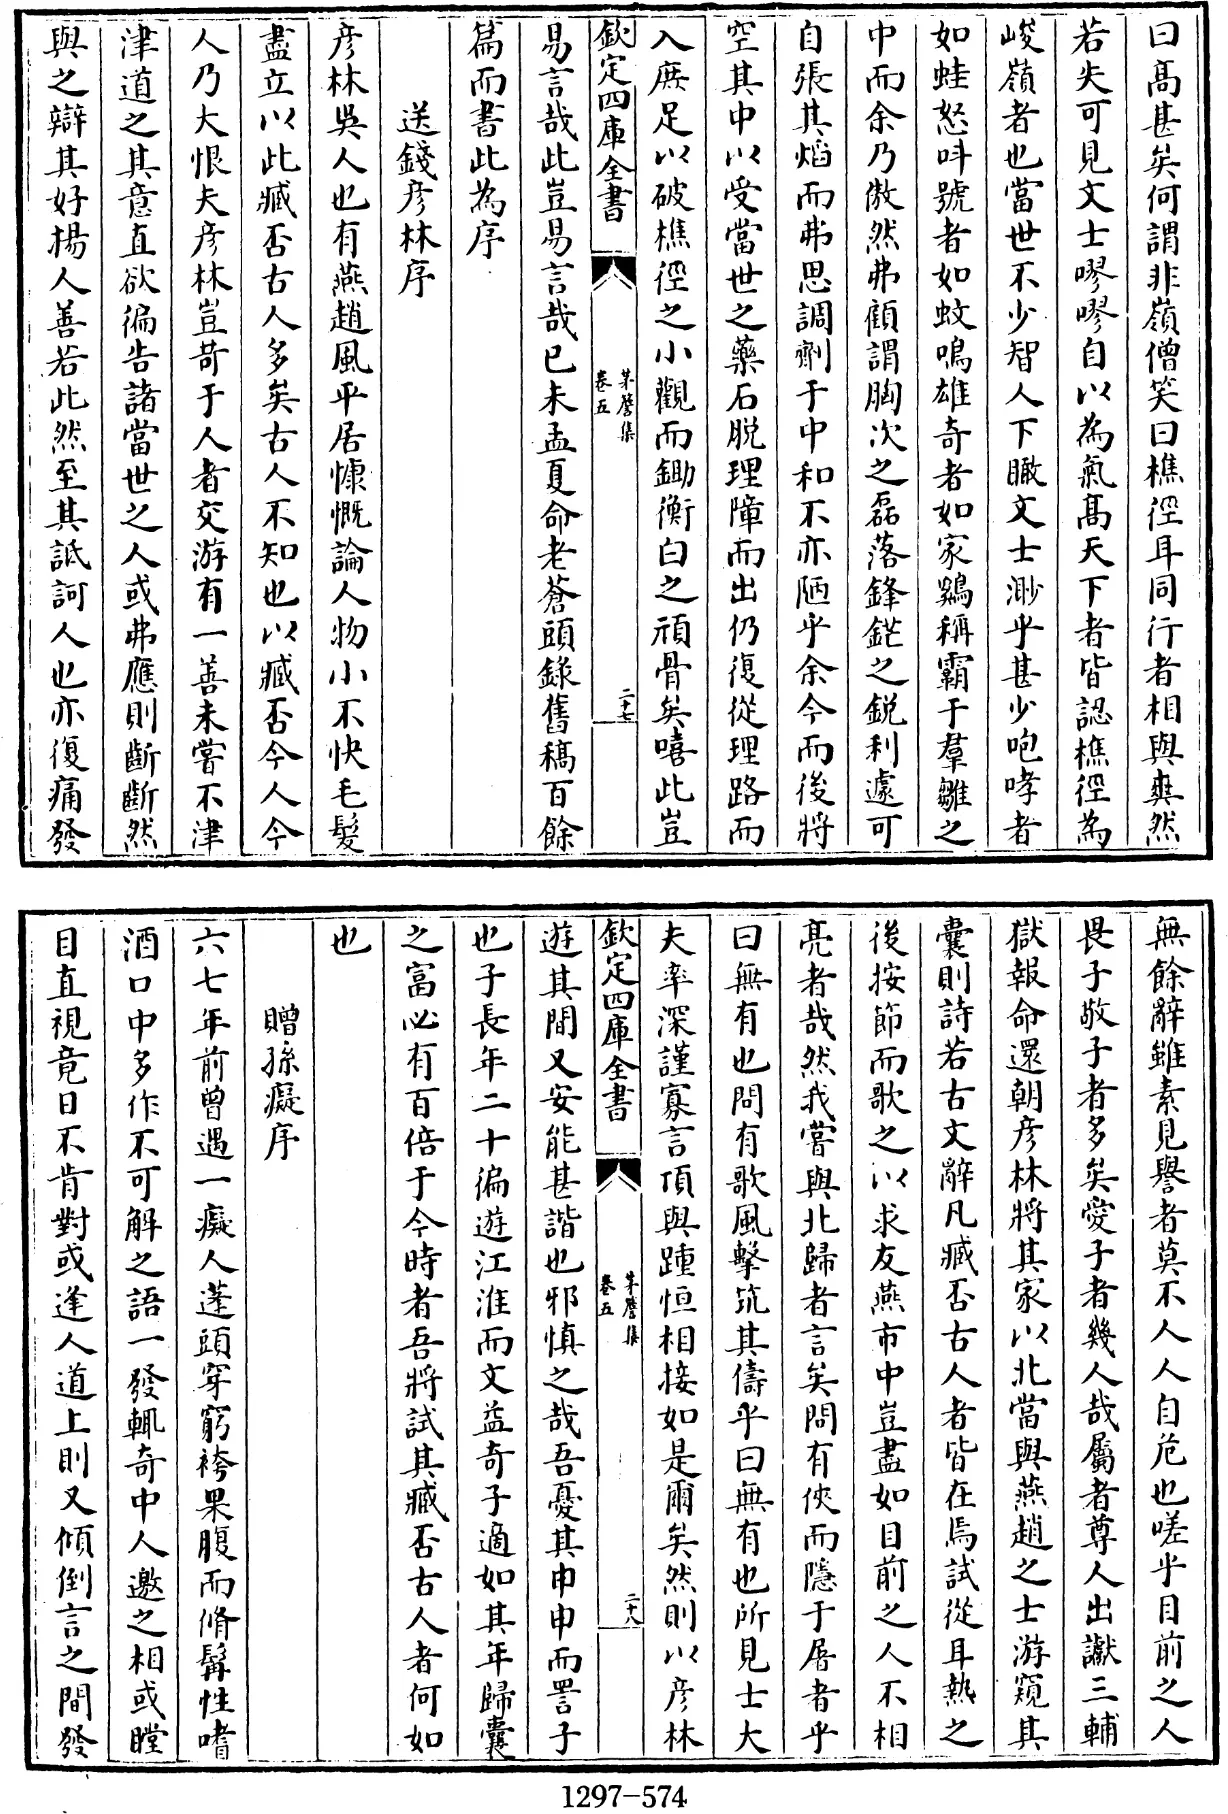 曰髙甚矣何謂非嶺僧笑曰樵徑耳同行者相與爽然
若失可見文士嘐嘐自以為氣髙天下者皆認樵徑為
峻嶺者也當世不少智人下瞰文士渺乎甚少咆哮者
如蛙怒呌號者如蚊鳴雄竒者如家鷄稱霸于羣雛之
中而余乃傲然弗顧謂胸次之磊落鋒鋩之鋭利遽可
自張其焰而弗思調劑于中和不亦陋乎余今而後將
空其中以受當世之藥石脱理障而出仍復從理路而
入庶足以破樵徑之小觀而鋤衡白之頑骨矣嘻此豈
欽定四庫全書
茅簷集
卷五
二十七
易言哉此豈易言哉已未孟夏命老蒼頭錄舊稿百餘
篇而書此為序
送錢彦林序
彦林吳人也有燕趙風平居慷慨論人物小不快毛髪
盡立以此臧否古人多矣古人不知也以臧否今人今
人乃大恨夫彦林豈苛于人者交游有一善未嘗不津
津道之其意直欲徧告諸當世之人或弗應則斷斷然
與之辯其好揚人善若此然至其詆訶人也亦復痛發
無餘辭雖素見譽者莫不人人自危也嗟乎目前之人
畏子敬子者多矣愛子者幾人哉屬者尊人出讞三輔
獄報命還朝彦林將其家以北當與燕趙之士游窺其
囊則詩若古文辭凡臧否古人者皆在焉試從耳熱之
後按節而歌之以求友燕市中豈盡如目前之人不相
亮者哉然我嘗與北歸者言矣問有俠而隱于屠者乎
曰無有也問有歌風擊筑其儔乎曰無有也所見士大
夫率深謹寡言頂與踵恒相接如是爾矣然則以彦林
欽定四庫全書
茅簷集
卷五
二十八
遊其間又安能甚諧也邪慎之哉吾憂其申申而詈子
也子長年二十徧遊江淮而文益竒子適如其年歸囊
之富必有百倍于今時者吾將試其臧否古人者何如
也
贈孫癡序
六七年前曾遇一癡人蓬頭穿窮袴果腹而脩髯性嗜
酒口中多作不可解之語一發輒竒中人邀之相或瞠
目直視竟日不肯對或逢人道上則又傾倒言之間發
1297-574